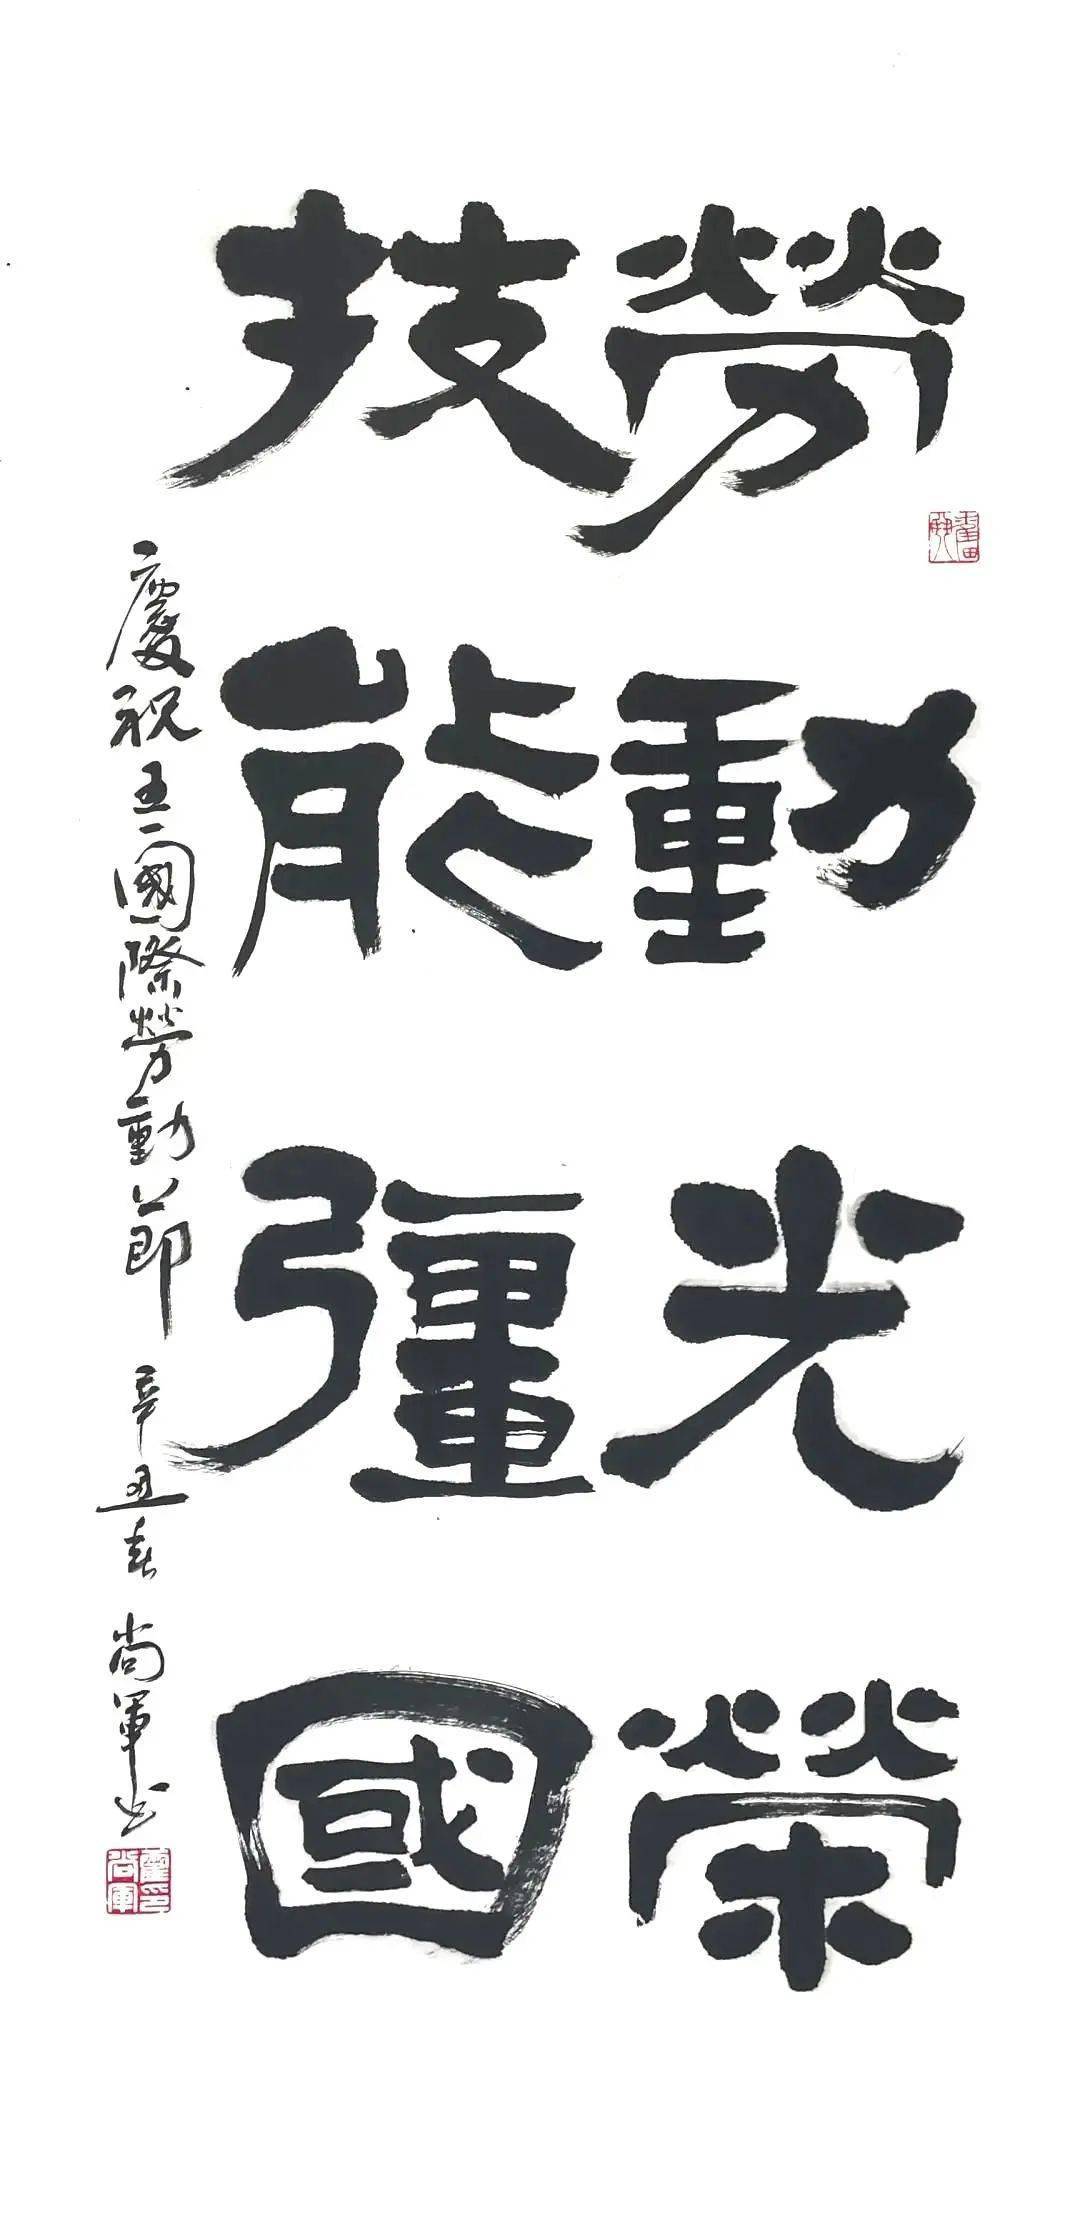 勞動光榮
技能彊國
慶祝五一國際勞動節 辛丑春 尚軍書
霍印尚軍